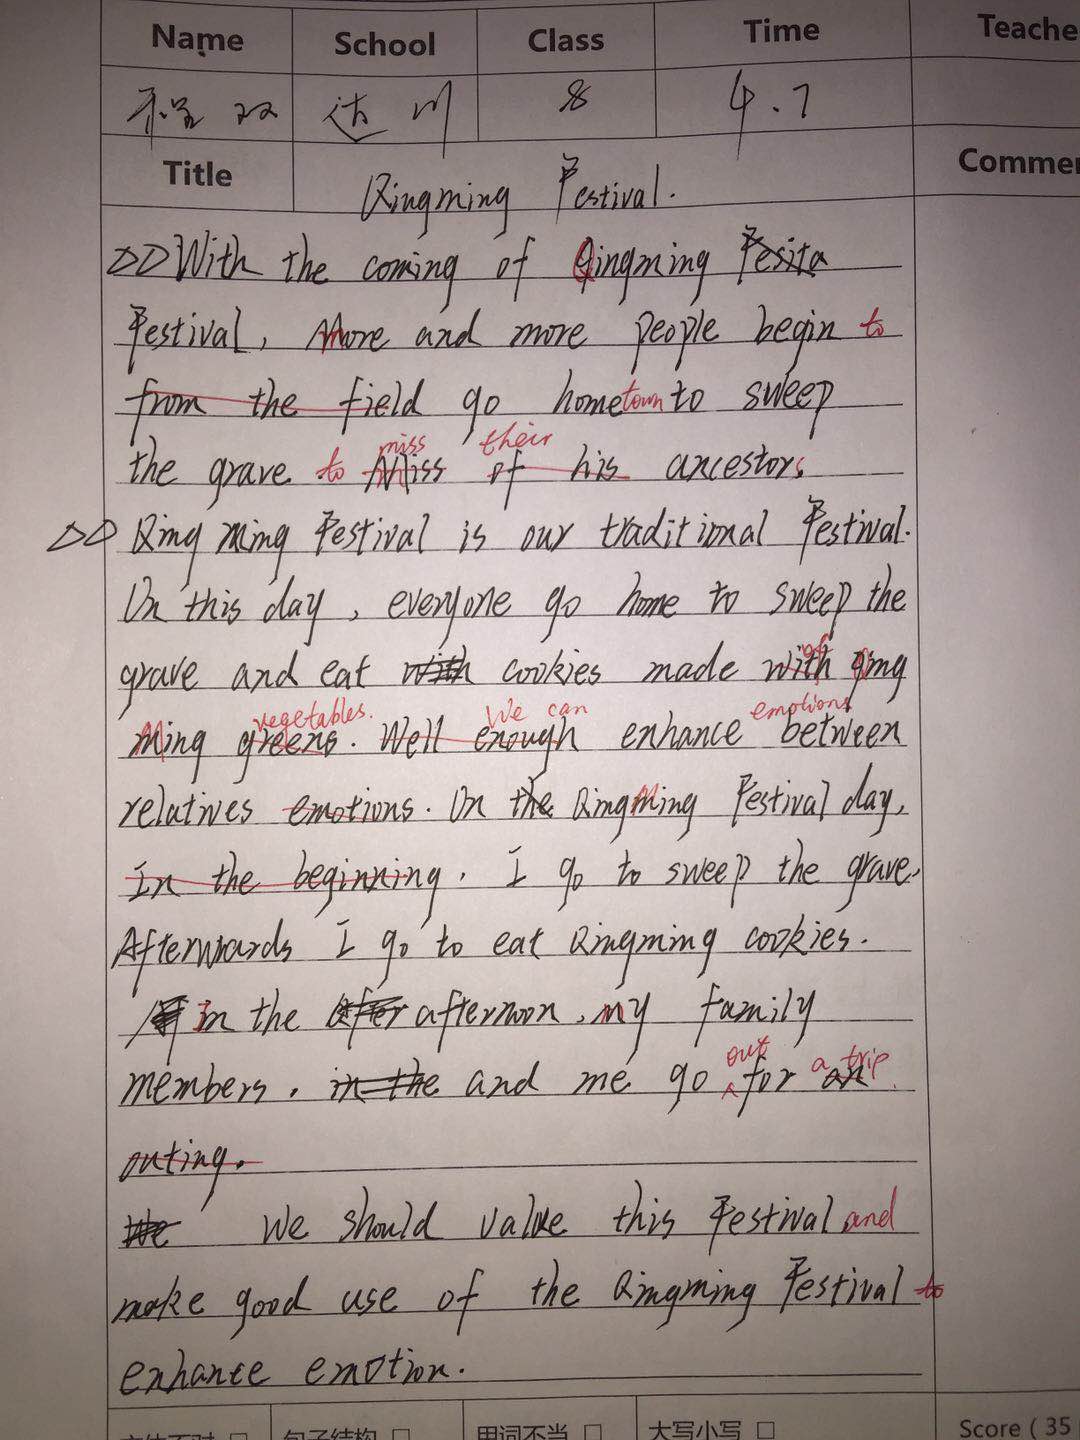 Name School Class Time Teache
程双 达川 8 4.7
Title Qingming Festival. Commen
With the coming of Qingming Fesita
Festival, More and more people begin to
from the field go hometown to sweep
miss their
the grave to Miss of his ancestors
Qing Ming Festival is our traditional Festival.
On this day, everyone go home to sweep the
grave and eat with cookies made with of qing
vegetables. We can emotions
Ming greens. Well enough enhance between
relatives emotions. On the QingMing Festival day,
In the beginning. I go to sweep the grave.
Afterwards I go to eat Qingming cookies.
In the after afternoon, my family
out a trip.
members, in the and me go for an
outing.
We We should value this Festival and
make good use of the Qingming Festival to
enhance emotion.
文体不对 □ 句子结构 □ 用词不当 □ 大写小写 □ Score ( 35